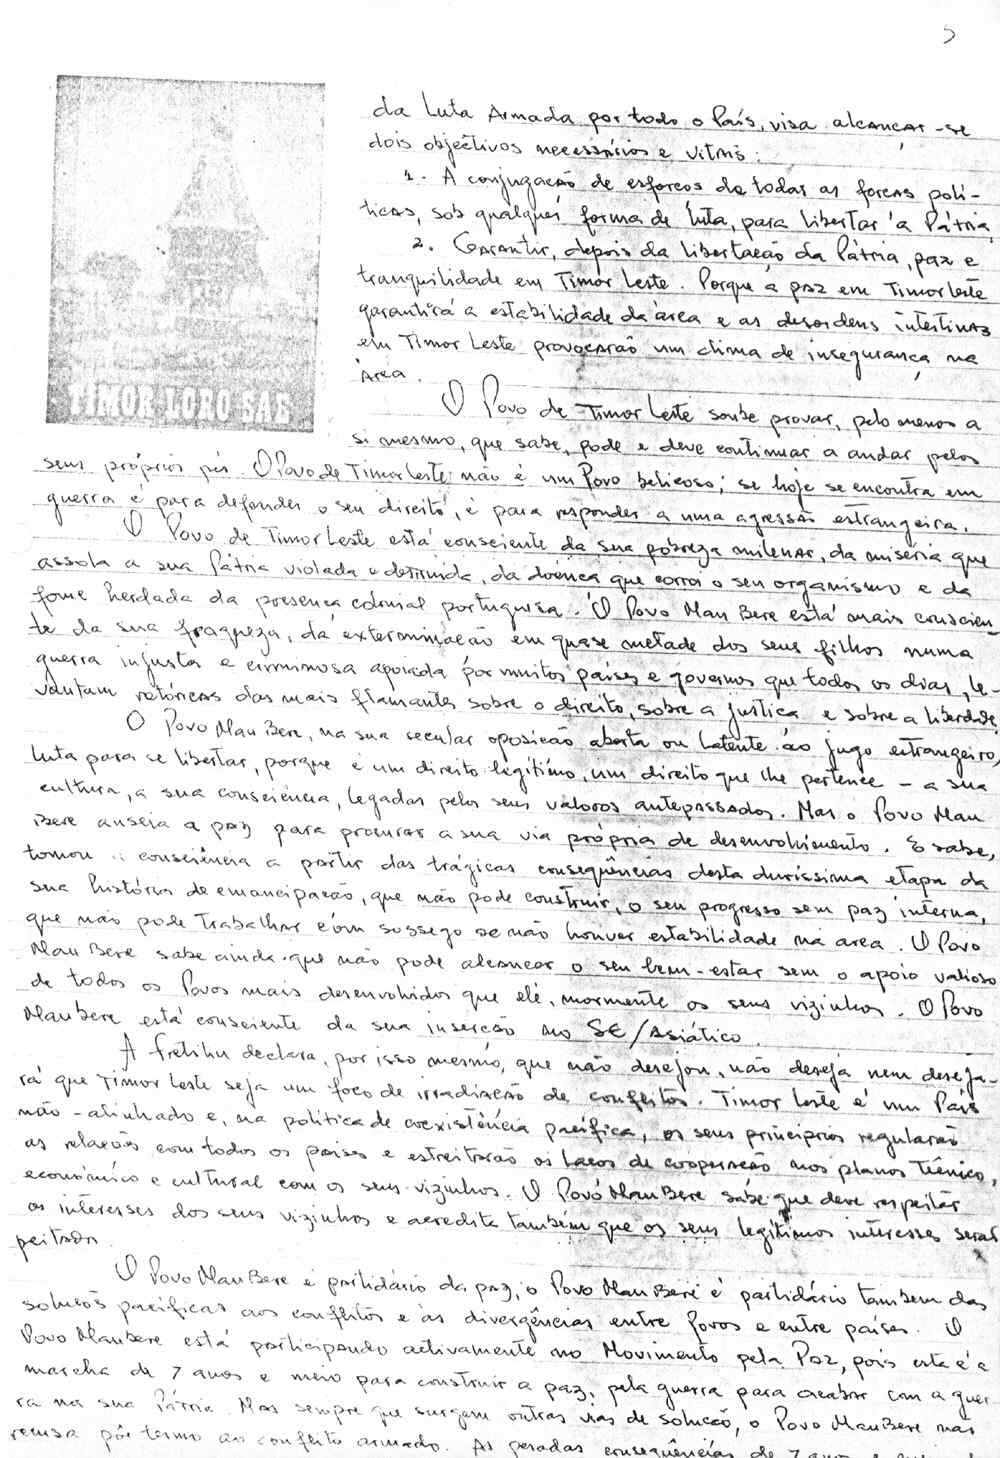 5
da Luta Armada por todo o País, visa alcançar-se
dois objectivos necessários e vitais:
1. A conjugação de esforços de todas as forças polí-
ticas, sob qualquer forma de luta, para libertar a Pátria.
2. Garantir, depois da libertação da Pátria, paz e
tranquilidade em Timor Leste. Porque a paz em Timor Leste
garantirá a estabilidade da área e as desordens intestinas
em Timor Leste provocarão um clima de insegurança na
área.
TIMOR LORO SAE
O Povo de Timor Leste soube provar, pelo menos a
si mesmo, que sabe, pode e deve continuar a andar pelos
seus próprios pés. O Povo de Timor Leste não é um Povo belicoso; se hoje se encontra em
guerra é para defender o seu direito, é para responder a uma agressão estrangeira.
O Povo de Timor Leste está consciente da sua pobreza milenar, da miséria que
assola a sua Pátria violada e destruída, da doença que corroi o seu organismo e da
fome herdada da presença colonial portuguesa. O Povo Mau Bere está mais conscien-
te da sua fraqueza, da exterminação em quase metade dos seus filhos numa
guerra injusta e criminosa apoiada por muitos países e governos que todos os dias, le-
vantam retóricas das mais flamantes sobre o direito, sobre a justiça e sobre a liberdade.
O Povo Mau Bere, na sua secular oposição aberta ou latente ao jugo estrangeiro,
luta para se libertar, porque é um direito legítimo, um direito que lhe pertence - a sua
cultura, a sua consciência, legadas pelos seus valorosos antepassados. Mas o Povo Mau
Bere anseia a paz para procurar a sua via própria de desenvolvimento. E sabe,
tomou consciência a partir das trágicas consequências desta duríssima etapa da
sua história de emancipação, que não pode construir o seu progresso sem paz interna,
que não pode trabalhar com sossego se não houver estabilidade na área. O Povo
Mau Bere sabe ainda que não pode alcançar o seu bem-estar sem o apoio valioso
de todos os Povos mais desenvolvidos que ele, mormente os seus vizinhos. O Povo
Mau Bere está consciente da sua inserção no SE/Asiático.
A Fretilin declara, por isso mesmo, que não desejou, não deseja nem deseja-
rá que Timor Leste seja um foco de irradiação de conflitos. Timor Leste é um País
não-alinhado e, na política de coexistência pacífica, os seus princípios regularão
as relações com todos os países e estreitarão os laços de cooperação nos planos técnico,
económico e cultural com os seus vizinhos. O Povo Mau Bere sabe que deve respeitar
os interesses dos seus vizinhos e acredita também que os seus legítimos interesses serão
peitados.
O Povo Mau Bere é partidário da paz, o Povo Mau Bere é partidário também das
soluções pacíficas aos conflitos e às divergências entre Povos e entre países. O
Povo Maubere está participando activamente no Movimento pela Paz, pois esta é a
marcha de 7 anos e meio para construir a paz, pela guerra para acabar com a guer-
ra na sua Pátria. Mas sempre que surgem outras vias de solução, o Povo Mau Bere não
recusa pôr termo ao conflito armado. As pesadas consequências de 7 anos e